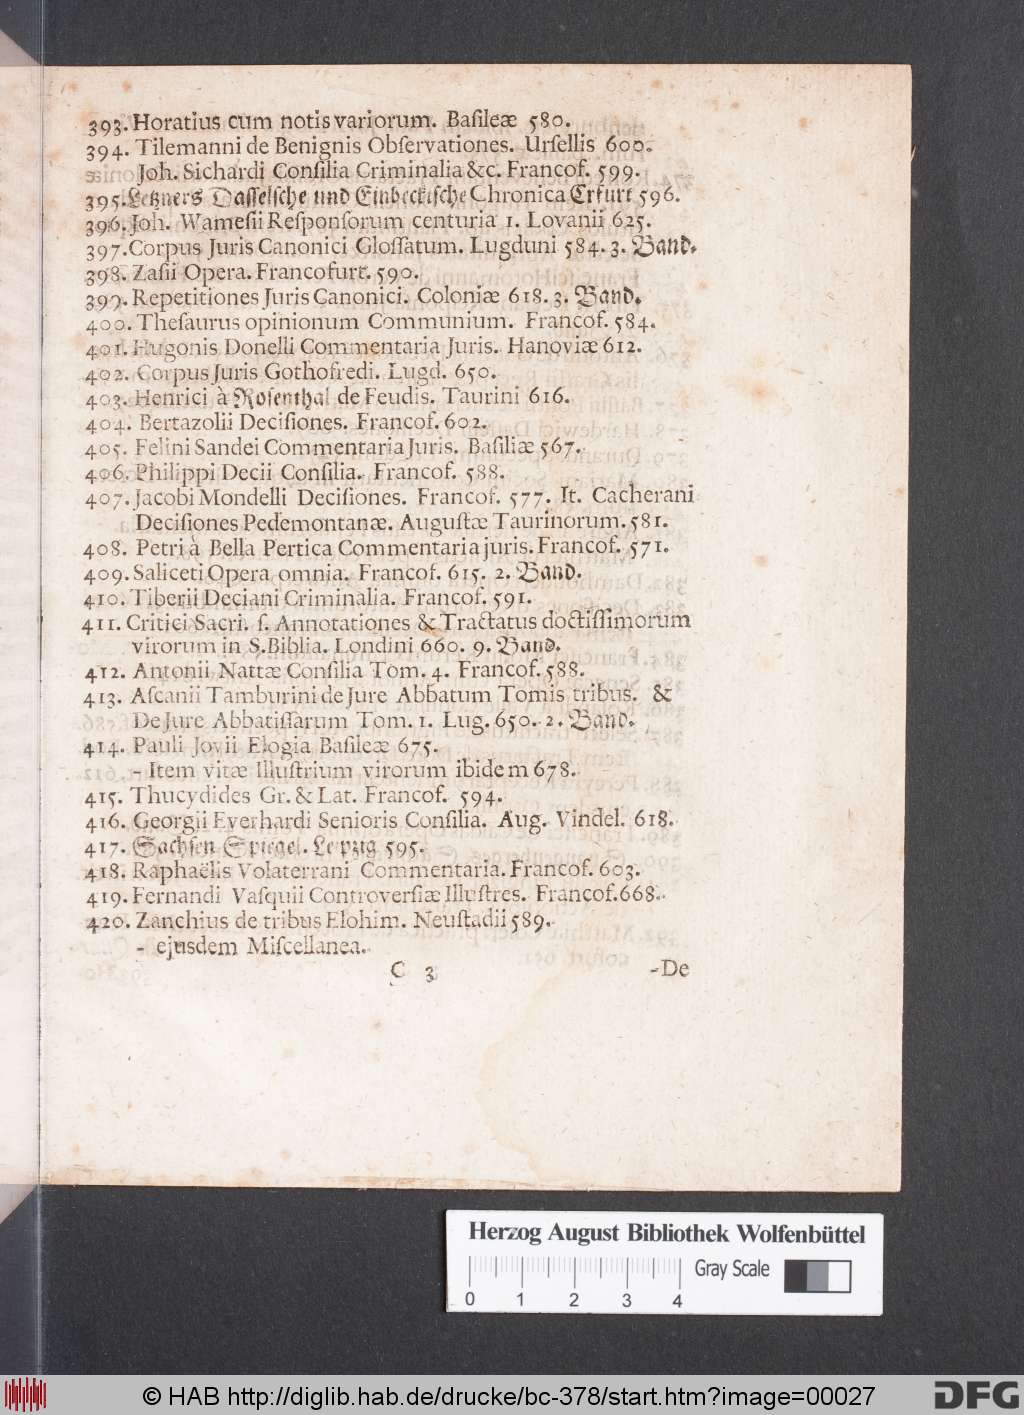 393. Horatius cum notis variorum. Baſileæ 580.
394. Tilemanni de Benignis Obſervationes. Urſellis 600.
Joh. Sichardi Conſilia Criminalia &c. Francof. 599.
395. Letzners Daſſelſche und Einbeckiſche Chronica Erfurt 596.
396. Joh. Wameſii Reſponſorum centuria 1. Lovanii 625.
397. Corpus Juris Canonici Gloſſatum. Lugduni 584. 3. Band.
398. Zaſii Opera. Francofurt. 590.
399. Repetitiones Juris Canonici. Coloniæ 618. 3. Band.
400. Theſaurus opinionum Communium. Francof. 584.
401. Hugonis Donelli Commentaria Juris. Hanoviæ 612.
402. Corpus Juris Gothofredi. Lugd. 650.
403. Henrici à Roſenthal de Feudis. Taurini 616.
404. Bertazolii Deciſiones. Francof. 602.
405. Felini Sandei Commentaria Juris. Baſiliæ 567.
406. Philippi Decii Conſilia. Francof. 588.
407. Jacobi Mondelli Deciſiones. Francof. 577. It. Cacherani
Deciſiones Pedemontanæ. Auguſtæ Taurinorum. 581.
408. Petri à Bella Pertica Commentaria juris. Francof. 571.
409. Saliceti Opera omnia. Francof. 615. 2. Band.
410. Tiberii Deciani Criminalia. Francof. 591.
411. Critici Sacri. ſ. Annotationes & Tractatus doctiſſimorum
virorum in S. Biblia. Londini 660. 9. Band.
412. Antonii Nattæ Conſilia Tom. 4. Francof. 588.
413. Aſcanii Tamburini de Jure Abbatum Tomis tribus. &
De Jure Abbatiſſarum Tom. 1. Lug. 650. 2. Band.
414. Pauli Jovii Elogia Baſileæ 675.
- Item vitæ Illuſtrium virorum ibidem 678.
415. Thucydides Gr. & Lat. Francof. 594.
416. Georgii Everhardi Senioris Conſilia. Aug. Vindel. 618.
417. Sachſen Spiegel. Leipzig 595.
418. Raphaëlis Volaterrani Commentaria. Francof. 603.
419. Fernandi Vaſquii Controverſiæ Illuſtres. Francof. 668.
420. Zanchius de tribus Elohim. Neuſtadii 589.
- ejusdem Miſcellanea.
C 3 -De
Herzog August Bibliothek Wolfenbüttel
Gray Scale
0 1 2 3 4
© HAB http://diglib.hab.de/drucke/bc-378/start.htm?image=00027
DFG